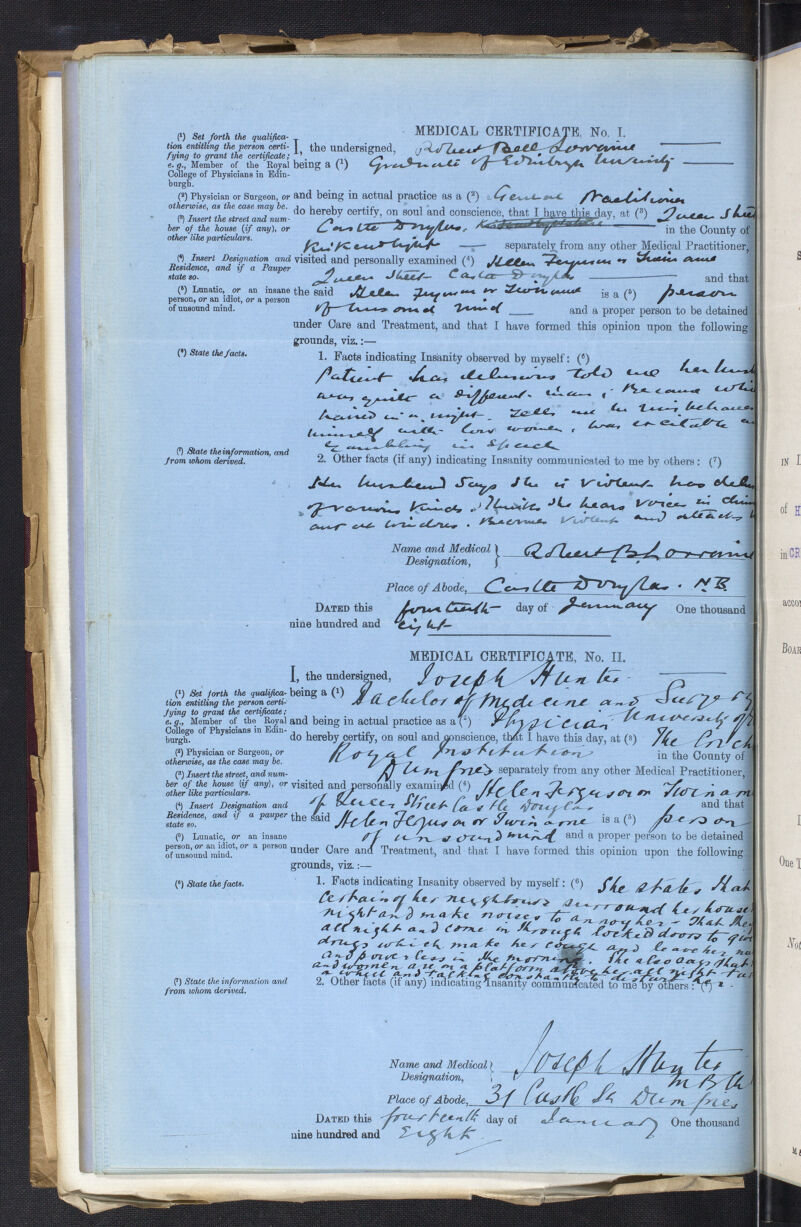 MEDICAL CERTIFICATE, No. I.
(1) Set forth the qualifica-
tion entitling the person certi-
fying to grant the certificate;
e.g., Member of the Royal
College of Physicians in Edin-
burgh.
I, the undersigned, Robert Bell Lorraine
being a (1) Graduate of Edinburgh University
(2) Physician or Surgeon, or
otherwise, as the case may be.
and being in actual practice as a (2) General Practitioner
(3) Insert the street and num-
ber of the house (if any), or
other like particulars.
do hereby certify, on soul and conscience, that I have this day, at (3) Queen Street
Castle Douglas, in the County of
Kirkcudbright separately from any other Medical Practitioner,
(4) Insert Designation and
Residence, and if a Pauper
state so.
visited and personally examined (4) Helen Ferguson or
Queen Street Castle Douglas and that
(5) Lunatic, or an insane
person, or an idiot, or a person
of unsound mind.
the said Helen Ferguson or is a (5) person
of unsound mind and a proper person to be detained
under Care and Treatment, and that I have formed this opinion upon the following
grounds, viz.:—
(6) State the facts.
1. Facts indicating Insanity observed by myself: (6)
Patient has delusions told me her
was quite a different man, became
haired in a night. Tells me he misbehaves
himself with low women, was excitable
rambling in speech
(7) State the information, and
from whom derived.
2. Other facts (if any) indicating Insanity communicated to me by others: (7)
Her husband says she is violent has
of various kinds. Thinks she hears voices in
and at windows. Becomes violent and attacks
Name and Medical
Designation, Robert B. Lorraine
Place of Abode, Castle Douglas. N.B.
DATED this fourteenth day of January One thousand
nine hundred and eight
MEDICAL CERTIFICATE, No. II.
(1) Set forth the qualifica-
tion entitling the person certi-
fying to grant the certificate;
e.g., Member of the Royal
College of Physicians in Edin-
burgh.
I, the undersigned, Joseph Hunter
being a (1) Bachelor of Medicine and Surgery
University of
(2) Physician or Surgeon, or
otherwise, as the case may be.
and being in actual practice as a (2) Physician
(3) Insert the street, and num-
ber of the house (if any), or
other like particulars.
do hereby certify, on soul and conscience, that I have this day, at (3) The Crich
Royal Institution in the County of
Dumfries separately from any other Medical Practitioner,
(4) Insert Designation and
Residence, and if a pauper
state so.
visited and personally examined (4) Helen Ferguson or
of Queen Street Castle Douglas and that
(5) Lunatic, or an insane
person, or an idiot, or a person
of unsound mind.
the said Helen Ferguson or is a (5) person
of unsound mind and a proper person to be detained
under Care and Treatment, and that I have formed this opinion upon the following
grounds, viz.:—
(6) State the facts.
1. Facts indicating Insanity observed by myself: (6) She states that
certain of her neighbours surround her house
night and make noises to annoy her. That they
all night and come in through locked doors to give
drugs which make her cough and leave her
and powerless in the morning. She also says that
and women are on a platform above her all night
a wheel and talking constantly to disturb her.
(7) State the information and
from whom derived.
2. Other facts (if any) indicating Insanity communicated to me by others: (7)
Name and Medical
Designation, Joseph Hunter
M B
Place of Abode, 31 Castle St Dumfries
DATED this fourteenth day of January One thousand
nine hundred and Eight
IN
of H
in CR
accor
BOAR
One